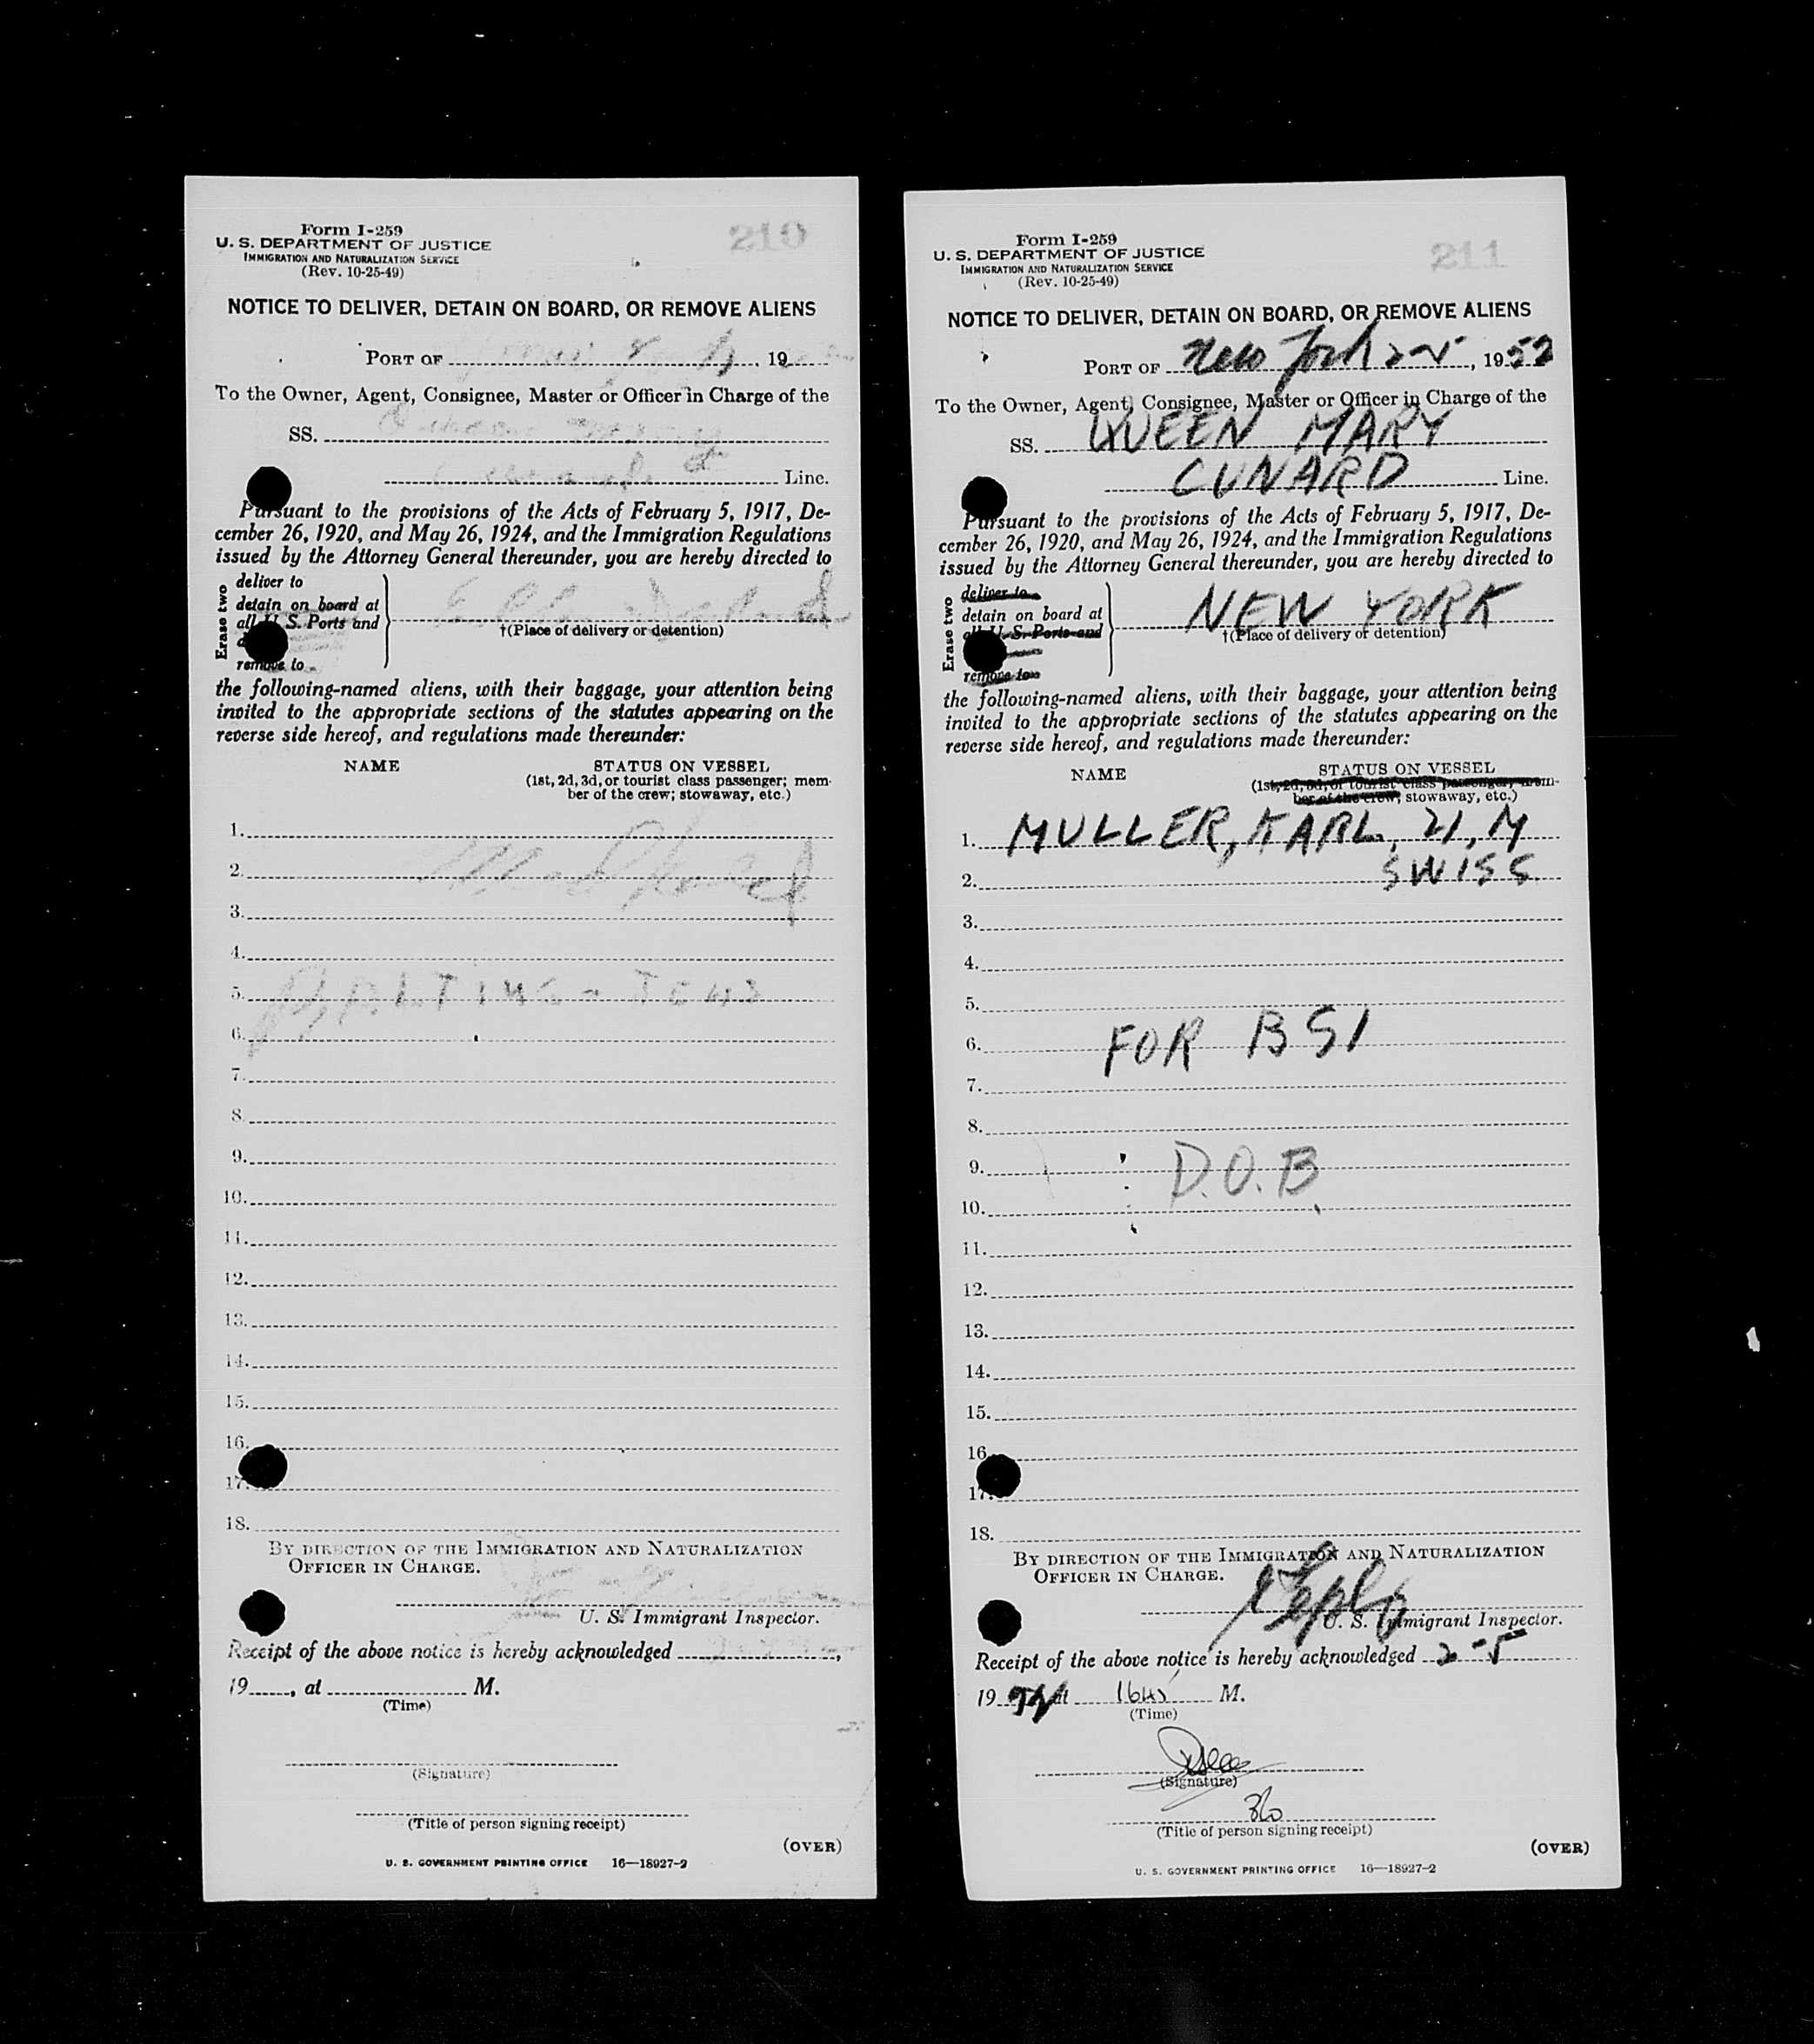 Form I-259
U. S. DEPARTMENT OF JUSTICE
IMMIGRATION AND NATURALIZATION SERVICE
(Rev. 10-25-49)
210
NOTICE TO DELIVER, DETAIN ON BOARD, OR REMOVE ALIENS
PORT OF , 19
To the Owner, Agent, Consignee, Master or Officer in Charge of the
SS. Queen Mary
Cunard Line.
Pursuant to the provisions of the Acts of February 5, 1917, De-
cember 26, 1920, and May 26, 1924, and the Immigration Regulations
issued by the Attorney General thereunder, you are hereby directed to
Erase two
deliver to
detain on board at
all U. S. Ports and
remove to
†(Place of delivery or detention)
the following-named aliens, with their baggage, your attention being
invited to the appropriate sections of the statutes appearing on the
reverse side hereof, and regulations made thereunder:
NAME STATUS ON VESSEL
(1st, 2d, 3d, or tourist class passenger; mem-
ber of the crew; stowaway, etc.)
1.
2.
3.
4.
5.
6.
7.
8.
9.
10.
11.
12.
13.
14.
15.
16.
17.
18.
BY DIRECTION OF THE IMMIGRATION AND NATURALIZATION
OFFICER IN CHARGE.
U. S. Immigrant Inspector.
Receipt of the above notice is hereby acknowledged ,
19 , at M.
(Time)
(Signature)
(Title of person signing receipt)
(OVER)
U. S. GOVERNMENT PRINTING OFFICE 16—18927-2
Form I-259
U. S. DEPARTMENT OF JUSTICE
IMMIGRATION AND NATURALIZATION SERVICE
(Rev. 10-25-49)
211
NOTICE TO DELIVER, DETAIN ON BOARD, OR REMOVE ALIENS
PORT OF New York 2-5, 1952
To the Owner, Agent, Consignee, Master or Officer in Charge of the
SS. QUEEN MARY
CUNARD Line.
Pursuant to the provisions of the Acts of February 5, 1917, De-
cember 26, 1920, and May 26, 1924, and the Immigration Regulations
issued by the Attorney General thereunder, you are hereby directed to
Erase two
deliver to
detain on board at
all U. S. Ports and
remove to
NEW YORK
†(Place of delivery or detention)
the following-named aliens, with their baggage, your attention being
invited to the appropriate sections of the statutes appearing on the
reverse side hereof, and regulations made thereunder:
NAME STATUS ON VESSEL
(1st, 2d, 3d, or tourist class passenger; mem-
ber of the crew; stowaway, etc.)
1. MULLER, KARL, 21, M
2. SWISS
3.
4.
5.
6. FOR BSI
7.
8.
9. D.O.B
10.
11.
12.
13.
14.
15.
16.
17.
18.
BY DIRECTION OF THE IMMIGRATION AND NATURALIZATION
OFFICER IN CHARGE.
U. S. Immigrant Inspector.
Receipt of the above notice is hereby acknowledged 2-5
19 52 at 1645 M.
(Time)
(Signature)
(Title of person signing receipt)
(OVER)
U. S. GOVERNMENT PRINTING OFFICE 16—18927-2